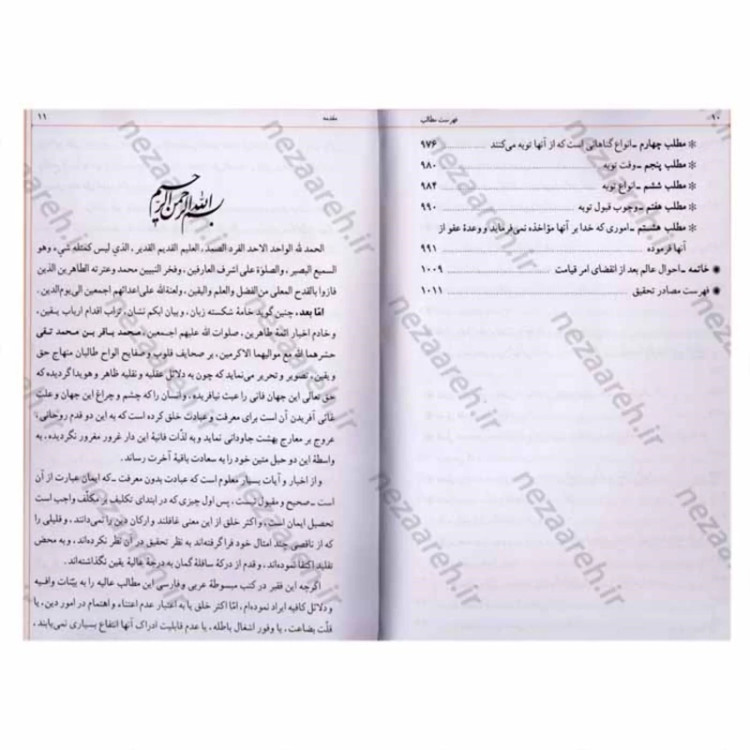 ۱۰ فهرست مطالب
* مطلب چهارم ـ انواع گناهانی است که از آنها توبه می‌کنند ۹۷۶
* مطلب پنجم ـ وقت توبه ۹۸۰
* مطلب ششم ـ انواع توبه ۹۸۴
* مطلب هفتم ـ وجوب قبول توبه ۹۹۰
* مطلب هشتم ـ اموری که خدا بر آنها مؤاخذه نمی‌فرماید و وعدهٔ عفو از
آنها فرموده ۹۹۱
خاتمه ـ احوال عالم بعد از انقضای امر قیامت ۱۰۰۹
فهرست مصادر تحقیق ۱۰۱۱
مقدمه ۱۱
بسم الله الرحمن الرحیم
الحمد لله الواحد الاحد الفرد الصمد، العلیم القدیم القدیر، الذي لیس کمثله شيء، وهو
السمیع البصیر، والصلوة علی اشرف العارفین، وفخر النبیین محمد وعترته الطاهرین الذین
فازوا بالقدح المعلی من الفضل والعلم والیقین، ولعنة الله علی اعدائهم اجمعین الی یوم الدین.
امّا بعد، چنین گوید خامهٔ شکسته زبان، وبیان ابکم نشان، تراب اقدام ارباب یقین،
وخادم اخبار ائمّه طاهرین، صلوات الله علیهم اجمعین، محمد باقر بن محمد تقی
حشرهما الله مع موالیهما الاکرمین، بر صحایف قلوب وصفایح الواح طالبان منهاج حق
و یقین، تصویر و تحریر می‌نماید که چون به دلائل عقلیه و نقلیه ظاهر و هویدا گردیده که
حق تعالی این جهان فانی را عبث نیافریده، وانسان را که چشم و چراغ این جهان وعلت
غائی آفریدن آن است برای معرفت و عبادت خلق کرده است که به این دو قدم روحانی،
عروج بر معارج بهشت جاودانی نماید وبه لذّات فانیهٔ این دار غرور مغرور نگردیده، به
واسطهٔ این دو حبل متین خود را به سعادت باقیهٔ آخرت رساند.
و از اخبار و آیات بسیار معلوم است که عبادت بدون معرفت ـ که ایمان عبارت از آن
است ـ صحیح و مقبول نیست، پس اول چیزی که در ابتدای تکلیف بر مکلّف واجب است
تحصیل ایمان است، و اکثر خلق از این معنی غافلند وارکان دین را نمی‌دانند، وقلیلی را
که از ناقصی چند امثال خود فرا گرفته‌اند به نظر تحقیق در آن نظر نکرده‌اند، و به محض
تقلید اکتفا نموده‌اند، وقدم از درکهٔ سافلهٔ گمان به درجهٔ عالیهٔ یقین نگذاشته‌اند.
اگرچه این فقیر در کتب مبسوطهٔ عربی وفارسی این مطالب عالیه را به بیّنات وافیه
ودلائل کافیه ایراد نموده‌ام، امّا اکثر خلق یا به اعتبار عدم اعتناء واهتمام در امور دین، یا
قلّت بضاعت، یا وفور اشغال باطله، یا عدم قابلیت ادراک آنها انتفاع بسیاری نمی‌یابند،
nezaareh.ir
nezaareh.ir
nezaareh.ir
nezaareh.ir
nezaareh.ir
nezaareh.ir
nezaareh.ir
nezaareh.ir
nezaareh.ir